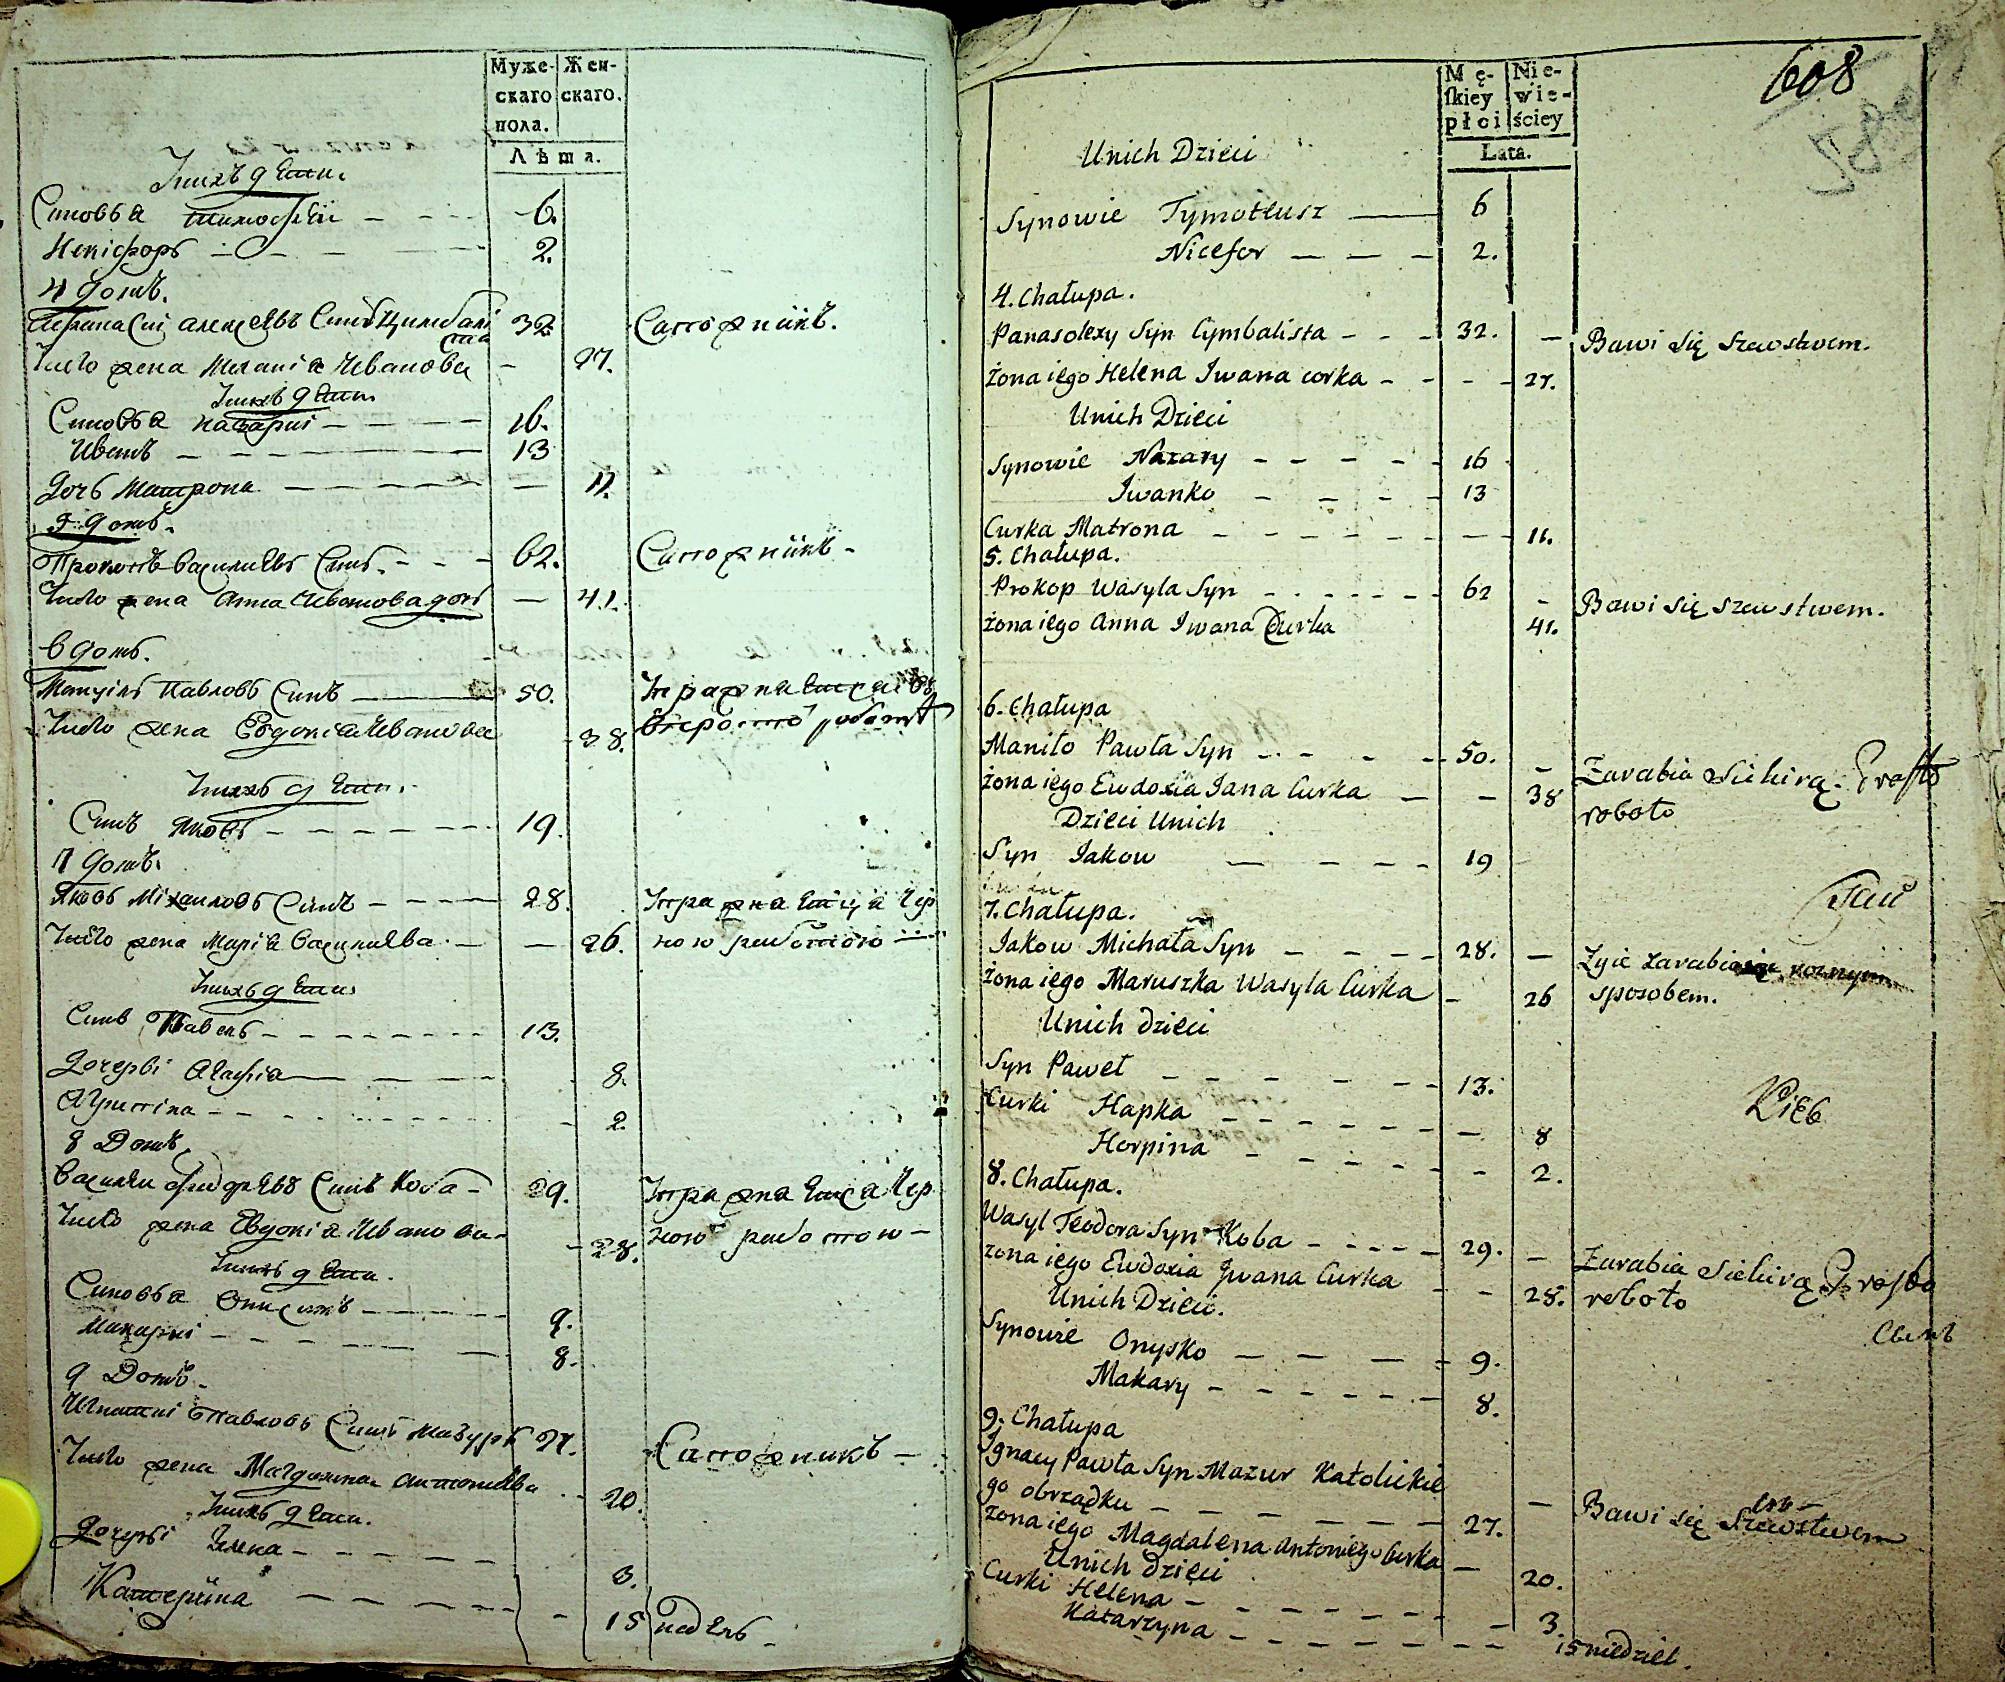 Муже- Жен-
скаго скаго.
пола.
Лѣта.
Унихъ дѣти.
Синовъя Тимофѣй - - - 6.
Некіфоръ - - - 2.
4 Домъ.
Афанасій Алексѣевъ Синъ Цимбалі
ста 32 Сапожникъ.
Жена Меланія Иванова - 27.
Унихъ дѣти
Синовъя Назарій - - - - 16.
Иванъ - - - - - - 13
Дочъ Матрона - - - - - 11.
5 Домъ.
Прокопъ Василіевъ Синъ. - - - 62. Сапожникъ -
Жена Анна Иванова дочъ - 41.
6 Домъ.
Мануілъ Павловъ Синъ - 50.
Жена Евдокія Иванова - 38.
Унихъ дѣти.
Синъ Яковъ - - - - - - 19.
7 Домъ.
Яковъ Міхаиловъ Синъ - - - - 28.
Жена Марія Василіева - - 26. ною работою
Унихъ дѣти
Синъ Павелъ - - - - - - - 13.
Дочерѣ Агафія - - - - 8.
Агрипина - - - - - - 2.
8 Домъ.
Василій Фиодоревъ Синъ Коба - 29.
Жена Евдокія Иванова - 28. ною работою -
Унихъ дѣти.
Синовъя Онисимъ - - - - 9.
Макарій - - - - - 8.
9 Домъ.
Игнатій Павловъ Синъ Мазуръ 27. Сапожникъ -
Жена Магдалина Антониева - 20.
Унихъ дѣти.
Дочерѣ Елена - - - - - 3.
Катерина - - - - - 15 недель -
608
Mę- Nie-
skiey wie-
płci ściey
Lata.
Unich Dzieci
Synowie Tymoteusz - 6
Nicefor - - - 2.
4. Chałupa.
Panasolexy Syn Cymbalista - - - 32. - Bawi się szewstwem.
żona iego Helena Iwana corka - - - - 27.
Unich Dzieci
Synowie Nazary - - - - - 16
Iwanko - - - - 13
Curka Matrona - - - - - - - 11.
5. Chałupa.
Prokop Wasyla Syn - - - - - - 62 - Bawi się szewstwem.
żona iego Anna Iwana Curka 41.
6. Chałupa
Maniło Pawła Syn - - - - 50. - Zarabia siekirą
żona iego Ewdoxia Jana Curka - - 38 roboto
Dzieci Unich
Syn Jakow - - - - 19
7. Chałupa.
Jakow Michała Syn - - - - 28. - Żyie zarabiaiąc roznym
żona iego Maruszka Wasyla Curka - 26 sposobem.
Unich dzieci
Syn Paweł - - - - - - 13.
Curki Hapka - - - - - - - 8
Horpina - - - - - - 2.
8. Chałupa.
Wasyl Teodora Syn Koba - - - - 29. - Zarabia siekirą
żona iego Ewdoxia Jwana Curka - - 28. roboto
Unich Dzieci.
Synowie Onysko - - - - 9.
Makary - - - - - - 8.
9. Chałupa
Ignacy Pawła Syn Mazur Katolickie
go obrządku - - - - - - 27. - Bawi się Szewstwem
żona iego Magdalena Antoniego Curka - 20.
Unich dzieci
Curki Helena - - - - - - - 3.
Katarzyna - - - - - - - 15 niedziel.